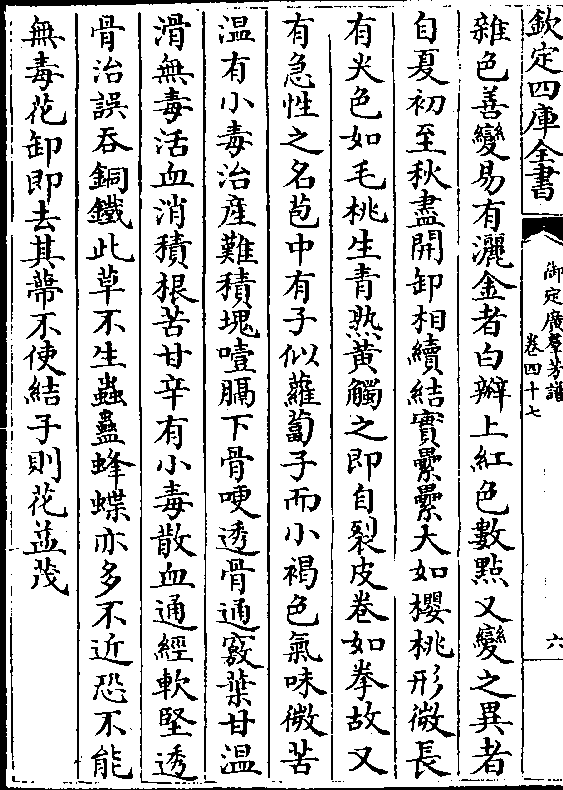 欽定四庫全書
御定廣羣芳譜
卷四十七
六
雜色善變易有灑金者白瓣上紅色數點又變之異者
自夏初至秋盡開卸相續結實纍纍大如櫻桃形微長
有尖色如毛桃生青熟黃觸之即自裂皮卷如拳故又
有急性之名苞中有子似蘿蔔子而小褐色氣味微苦
温有小毒治產難積塊噎膈下骨哽透骨通竅葉甘温
滑無毒活血消積根苦甘辛有小毒散血通經軟堅透
骨治誤吞銅鐵此草不生蟲蠱蜂蝶亦多不近恐不能
無毒花卸即去其蔕不使結子則花益茂